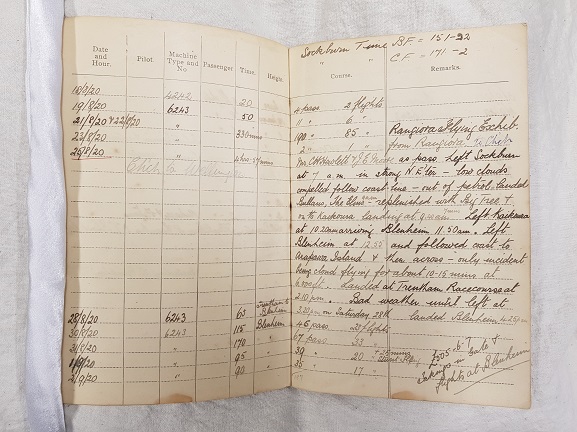 Date and Hour. Pilot. Machine Type and No. Passenger Time. Height.
18/8/20 4242 20
19/8/20 6243 50
21/8/20 & 22/8/20 " 330 mins
23/8/20 "
25/8/20 " 4 hrs
28/8/20 6243 65 Trentham to Blenheim
30/8/20 6243 115 Blenheim
31/8/20 " 170
1/9/20 " 95
2/9/20 " 90
Sockburn Time B.F. = 151-32
" " C.F. = 171-2
Course. Remarks.
4 pass. 2 flights
11 " 6 "
190 " 85 " Rangiora Flying Exhib.
2 " 1 " from Rangiora to Chch
as pass. Left Sockburn
at 7 a.m. in strong N.E'ter - low clouds
compelled follow coast line - out of petrol & landed
The Elms - replenished with &
on to Kaikoura landing at Left Kaikoura
at 10.20am arriving Blenheim 11.50am. Left
Blenheim at 12.55 and followed coast to
Arapawa Island & then across - only incident
being cloud flying for about 10-15 mins at
6000ft. Landed at Trentham Racecourse at
2.10pm. Bad weather until left at
3.20pm on Saturday 28th landed Blenheim 4.25pm
46 pass. 20 flights
67 pass 33 "
39 " 20 "
35 " 17 "
£305-6-7
Takings in &
flights at Blenheim